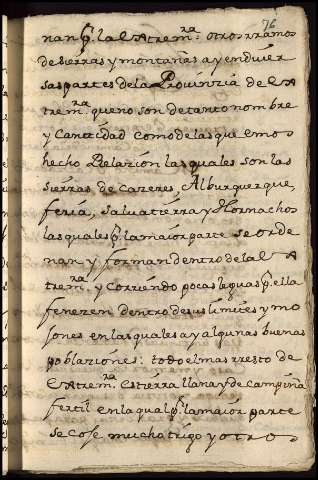 76
nan pr. la Extremra. otros rramos
de sierras y montañas ay en diver
sas partes de la Provinzia de Ex
tremra. que no son de tanto nombre
y Cantidad como de las que emos
hecho Relazion las quales son las
Sierras de Cazeres, Alburquerque,
feria, Salvatierra y Hornachos
las quales pr. la maior parte se orde
nan y forman dentro de la Ex
tremra. y corriendo pocas leguas pr. ella
fenezen dentro de sus limites y mo
jones en las quales ay algunas buenas
poblaziones. todo el mas rresto de
Extremra. es tierra llana y de Campiña
fertil en la qual pr. la maior parte
se Coje mucho trigo y otro